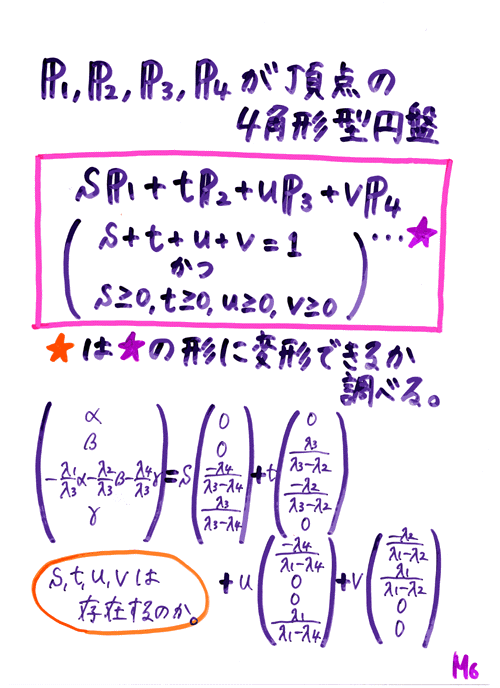 ℙ₁, ℙ₂, ℙ₃, ℙ₄ が頂点の
4角形型円盤
sℙ₁+tℙ₂+uℙ₃+vℙ₄
(s+t+u+v=1
かつ
s≥0, t≥0, u≥0, v≥0) …★
★は★の形に変形できるか
調べる。
(α, β, -λ₁/λ₃ α - λ₂/λ₃ β - λ₄/λ₃ γ, γ) = s(0, 0, -λ₄/(λ₃-λ₄), λ₃/(λ₃-λ₄)) + t(0, λ₃/(λ₃-λ₂), -λ₂/(λ₃-λ₂), 0)
+ u(-λ₄/(λ₁-λ₄), 0, 0, λ₁/(λ₁-λ₄)) + v(-λ₂/(λ₁-λ₂), λ₁/(λ₁-λ₂), 0, 0)
s, t, u, v は
存在するのか。
M6